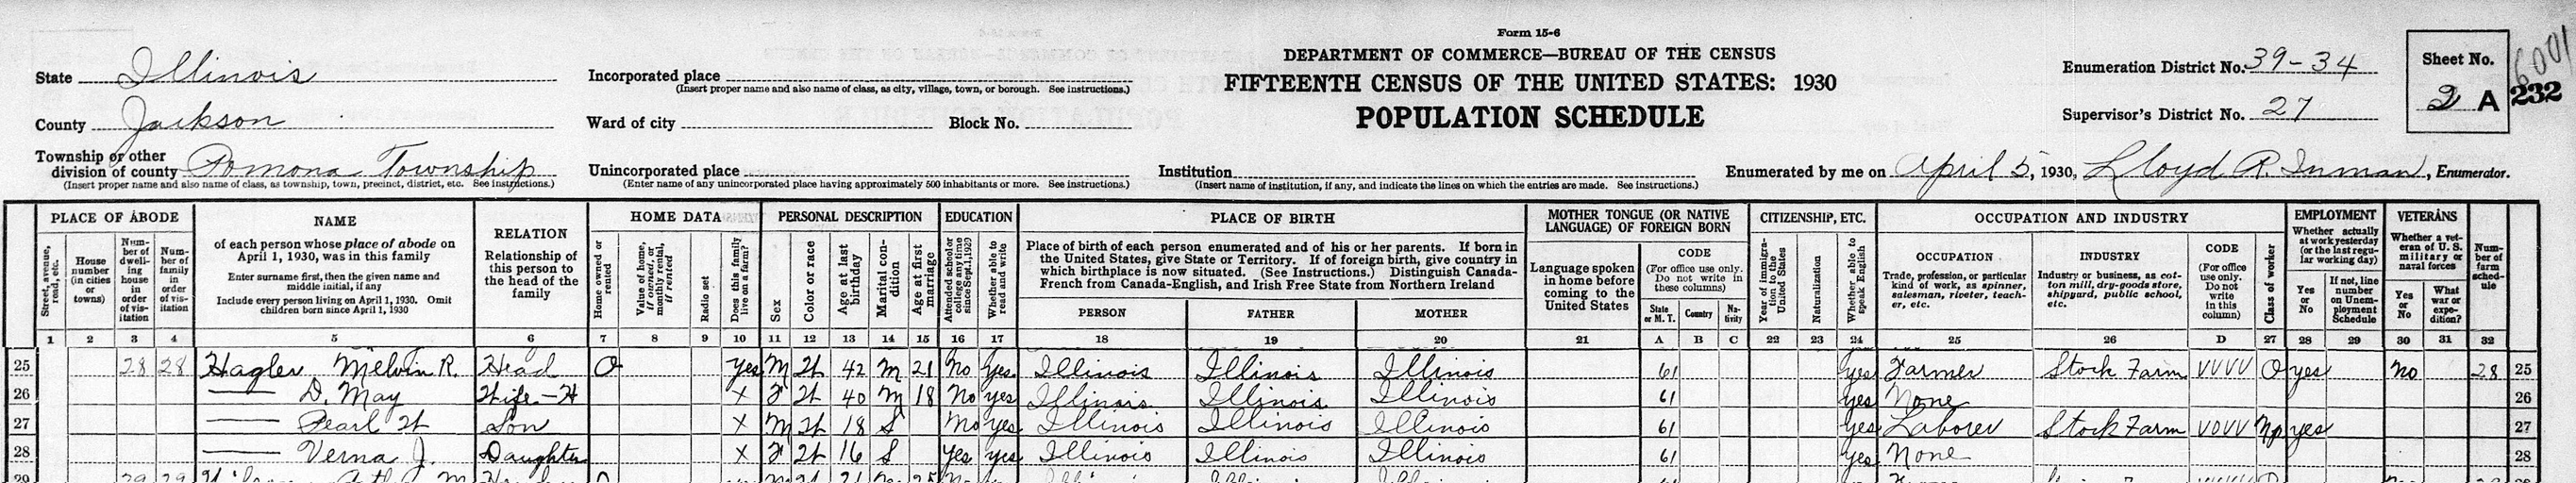 Form 15-6
DEPARTMENT OF COMMERCE—BUREAU OF THE CENSUS
FIFTEENTH CENSUS OF THE UNITED STATES: 1930
POPULATION SCHEDULE
State Illinois
County Jackson
Township or other division of county Pomona Township
(Insert proper name and also name of class, as township, town, precinct, district, etc. See instructions.)
Incorporated place
(Insert proper name and also name of class, as city, village, town, or borough. See instructions.)
Ward of city Block No.
Unincorporated place
(Enter name of any unincorporated place having approximately 500 inhabitants or more. See instructions.)
Institution
(Insert name of institution, if any, and indicate the lines on which the entries are made. See instructions.)
Enumeration District No. 39-34
Supervisor's District No. 27
Sheet No.
2 A
232
6001
Enumerated by me on April 5, 1930, Lloyd R. Inman, Enumerator.
PLACE OF ABODE
Street, avenue, road, etc.
House number (in cities or towns)
Number of dwelling house in order of visitation
Number of family in order of visitation
NAME
of each person whose place of abode on April 1, 1930, was in this family
Enter surname first, then the given name and middle initial, if any
Include every person living on April 1, 1930. Omit children born since April 1, 1930
RELATION
Relationship of this person to the head of the family
HOME DATA
Home owned or rented
Value of home, if owned, or monthly rental, if rented
Radio set
Does this family live on a farm?
PERSONAL DESCRIPTION
Sex
Color or race
Age at last birthday
Marital condition
Age at first marriage
EDUCATION
Attended school or college any time since Sept. 1, 1929
Whether able to read and write
PLACE OF BIRTH
Place of birth of each person enumerated and of his or her parents. If born in the United States, give State or Territory. If of foreign birth, give country in which birthplace is now situated. (See Instructions.) Distinguish Canada-French from Canada-English, and Irish Free State from Northern Ireland
PERSON FATHER MOTHER
MOTHER TONGUE (OR NATIVE LANGUAGE) OF FOREIGN BORN
Language spoken in home before coming to the United States
CODE
(For office use only. Do not write in these columns)
State or M. T. Country Nativity
CITIZENSHIP, ETC.
Year of immigration to the United States
Naturalization
Whether able to speak English
OCCUPATION AND INDUSTRY
OCCUPATION
Trade, profession, or particular kind of work, as spinner, salesman, riveter, teacher, etc.
INDUSTRY
Industry or business, as cotton mill, dry-goods store, shipyard, public school, etc.
CODE
(For office use only. Do not write in this column)
Class of worker
EMPLOYMENT
Whether actually at work yesterday (or the last regular working day)
Yes or No
If not, line number on Unemployment Schedule
VETERANS
Whether a veteran of U. S. military or naval forces
Yes or No
What war or expedition?
Number of farm schedule
1 2 3 4 5 6 7 8 9 10 11 12 13 14 15 16 17 18 19 20 21 A B C 22 23 24 25 26 D 27 28 29 30 31 32
25 28 28 Hagler Melvin R. Head O Yes M W 42 M 21 No Yes Illinois Illinois Illinois 61 Yes Farmer Stock Farm VVVV O yes No 28 25
26 — D. May Wife-H X F W 40 M 18 No yes Illinois Illinois Illinois 61 yes None 26
27 — Pearl W Son X M W 18 S No yes Illinois Illinois Illinois 61 Yes Laborer Stock Farm VOVV NP yes 27
28 — Verna J. Daughter X F W 16 S Yes yes Illinois Illinois Illinois 61 Yes None 28
29 29 29